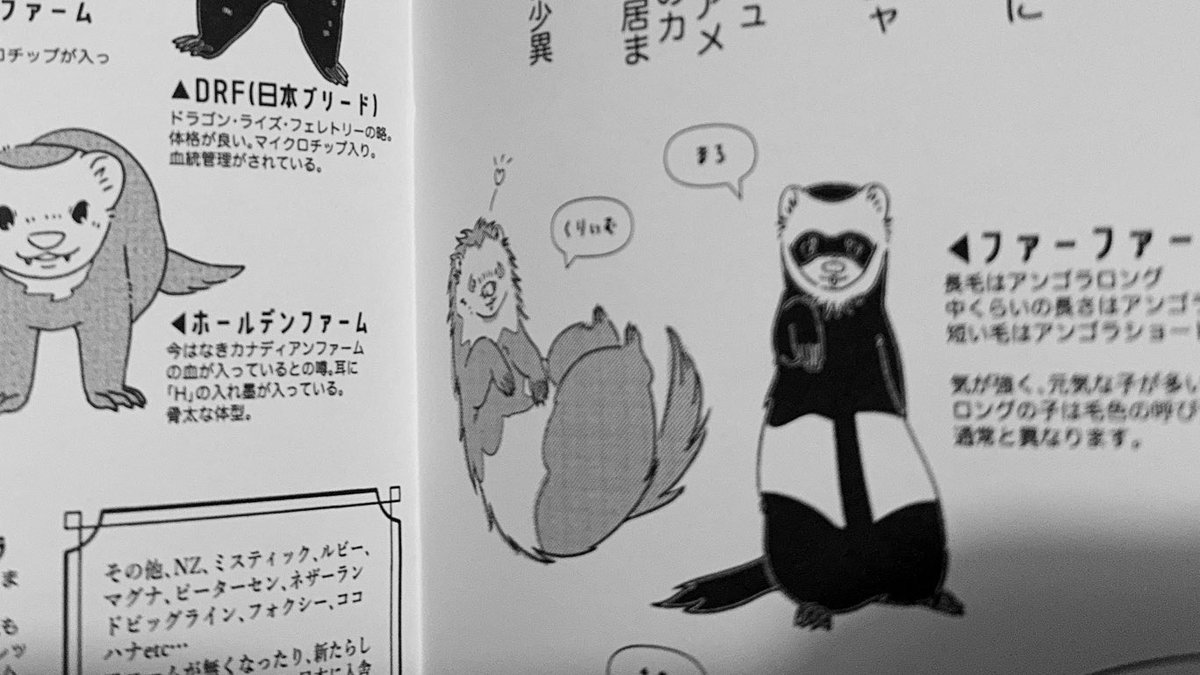 ファーム
チップが入っ
▲DRF(日本ブリード)
ドラゴン・ライズ・フェレトリーの略。
体格が良い。マイクロチップ入り。
血統管理がされている。
◀ホールデンファーム
今はなきカナディアンファーム
の血が入っているとの噂。耳に
「H」の入れ墨が入っている。
骨太な体型。
その他、NZ、ミスティック、ルビー、
マグナ、ピーターセン、ネザーラン
ドビッグライン、フォクシー、ココ
ハナetc…
が無くなったり、新たらし
に
ャ
ュ
アメ
のカ
居ま
少異
まろ
くりぃむ
◀ファーファー
長毛はアンゴラロング
中くらいの長さはアンゴラ
短い毛はアンゴラショー
気が強く、元気な子が多い
ロングの子は毛色の呼び
通常と異なります。